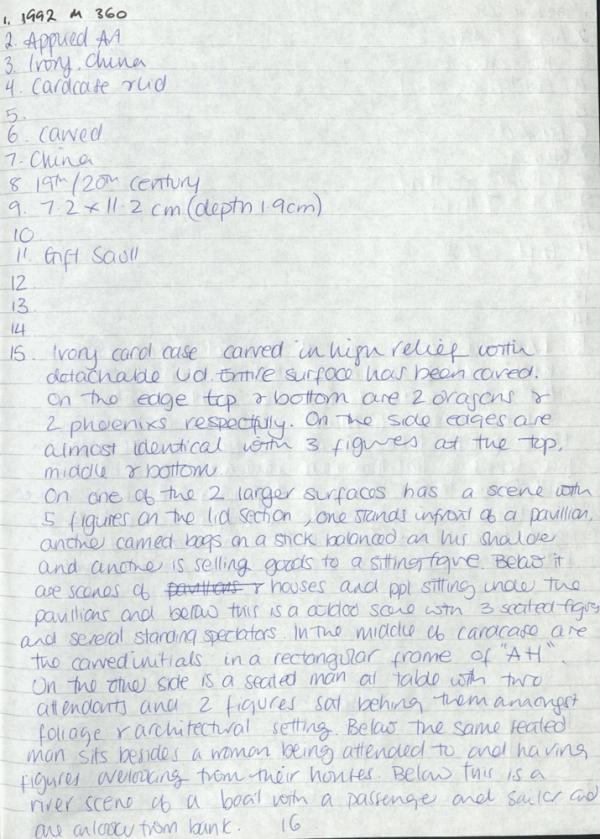 1. 1992 M 360
2. Applied Art
3. Ivory. China
4. Cardcase & lid
5.
6. Carved
7. China
8 19th/20th century
9. 7.2 x 11.2 cm (depth 1.9cm)
10
11. Gift Saull
12
13.
14
15. Ivory card case carved in high relief with
detachable lid. Entire surface has been caved.
On the edge top & bottom are 2 dragons &
2 phoenixs respectfully. On the side edges are
almost identical with 3 figures at the top,
middle & bottom.
On one of the 2 larger surfaces has a scene with
5 figures on the lid section, one stands infront of a pavillion,
anothe carried bags on a stick balanced on his
and anothe is selling goods to a sitting figure. Below it
are scenes of pavillions & houses and ppl sitting unde the
pavillions and below this is a scene with 3 seated figures
and several standing spectators. In the middle of cardcase are
the carved initials in a rectangular frame of "AH".
On the othe side is a seated man at table with two
attendants and 2 figures sat behing them amongst
foliage & architectural setting. Below the same seated
man sits besides a woman being attended to and having
figures overlooking from their houses. Below this is a
river scene of a boat with a passenge and sailor and
are from bank. 16